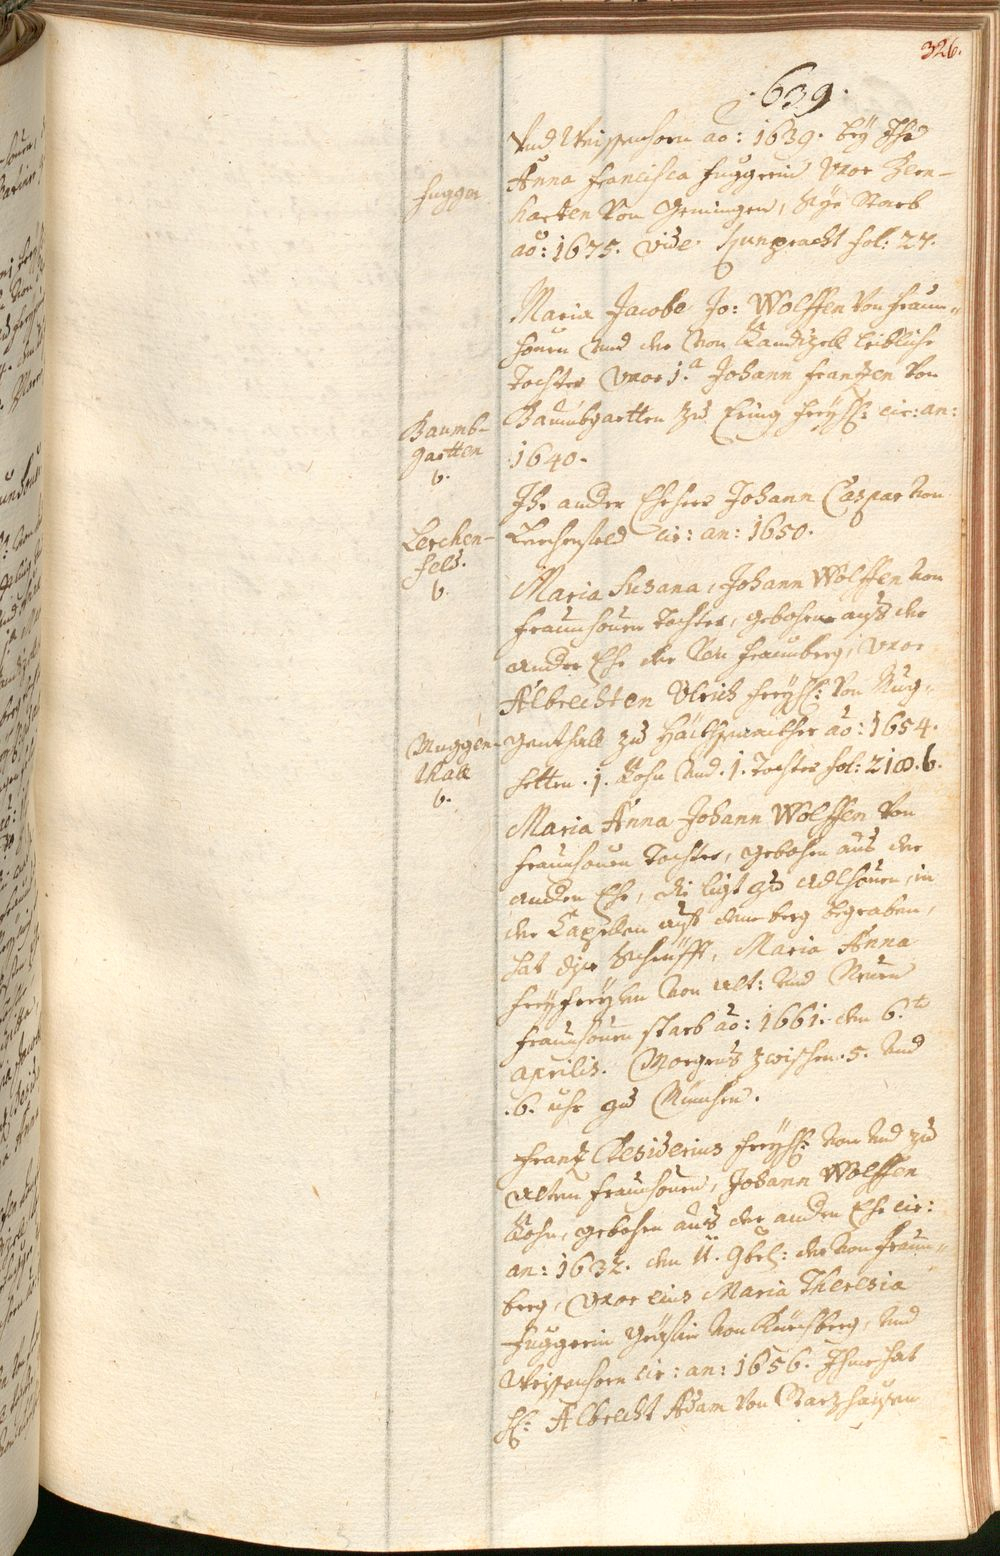 326.
.639.
Vnd Weissenhorn ao: 1639. bey Ihr
Fugger
Anna Francisca Fuggerin Vxor Bern-
harten Von Gemingen, Sye Starb
ao: 1675. vide Hunpracht fol: 27.
Maria Jacobe Jo: Wolffen Von Fraun-
houen vnd der Von Kandizell leibliche
Tochter Vxor 1.a Johann Frantzen Von
Baumb-
gartten
v.
Baumbgartten zu Ering Freyh: cir: an:
1640.
Ihr ander Eheherr Johann Caspar Von
Lerchen-
feld.
v.
Lerchenfeld cir: an: 1650.
Maria Susana, Johann Wolffen von
Fraunhouen Tochter, gebohrn auß der
ander Ehe der von Fraunberg, Vxor
Albrechten Ulrich Freyh: Von Mug-
Muggen-
thall
v.
genthall zu ao: 1654.
hetten .1. Sohn vnd .1. Tochter fol: 218.b.
Maria Anna Johann Wolffen Von
Fraunhouen Tochter, gebohrn aus der
andern Ehe, die ligt zu Adlhouen, in
der Capellen auf dem berg begraben,
hat dise Schrifft, Maria Anna
Freyfreylin von alt: vnd Neuen
Fraunhouen starb ao: 1661. den 6.te
aprilis. Morgens zwischen .5. vnd
.6. uhr zu München.
Frantz Desiderius Freyh: von vnd zu
Alten Fraunhouen, Johann Wolffen
Sohn, gebohrn aus der andern Ehe cir:
an: 1632. den 11. 9br: der von Fraun-
berg, Vxor eius Maria Theresia
Fuggerin Gräfin von Kirchberg, vnd
Weissenhorn cir: an: 1656. Ihme hat
H: Albrecht Adam Von Starzhausen